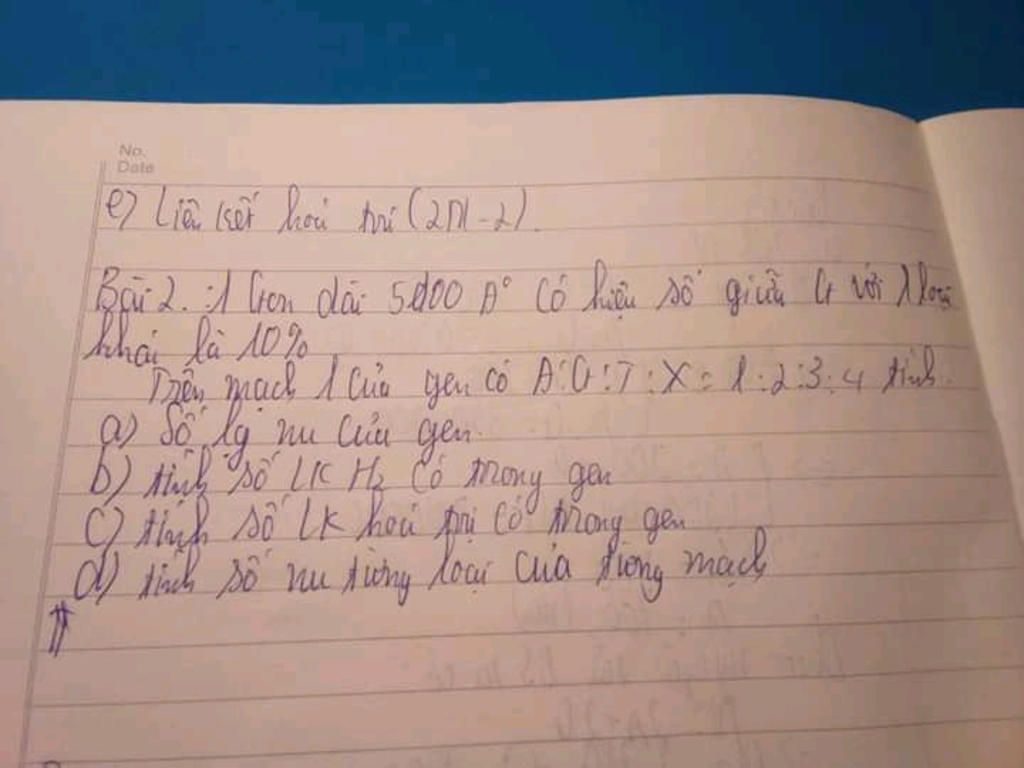 No.
Date
e) Liên kết hoá trị (2N - 2).
Bài 2. : 1 Gen dài 5100 A° có hiệu số giữa G với 1 loại
khác là 10%
Trên mạch 1 của gen có A:G:T:X = 1:2:3:4 tính
a) Số lg nu của gen.
b) tính số LK H₂ có trong gen
c) tính số LK hoá trị có trong gen
d) tính số nu từng loại của từng mạch